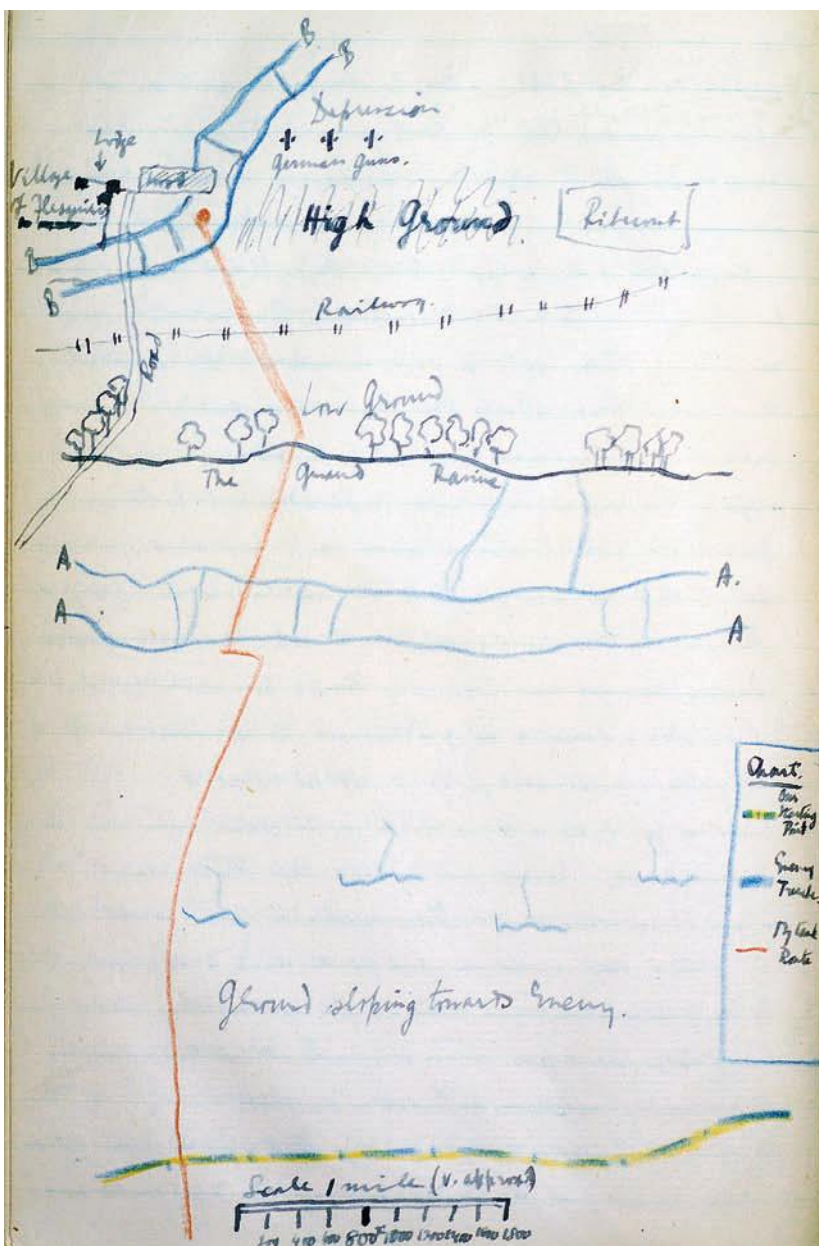 B
B
Depression
Lodge
German Guns.
Village
of Flesquières
Wood
High Ground.
Ribecourt
B
B
Railway.
Road
Low Ground
The Grand Ravine
A
A.
A
A
Chart.
Our
Starting
Point
Enemy
Trenches
My tank
Route
Ground sloping towards Enemy.
Scale 1 mile (v. approx)
200 400 600 800 1000 1200 1400 1600 1800